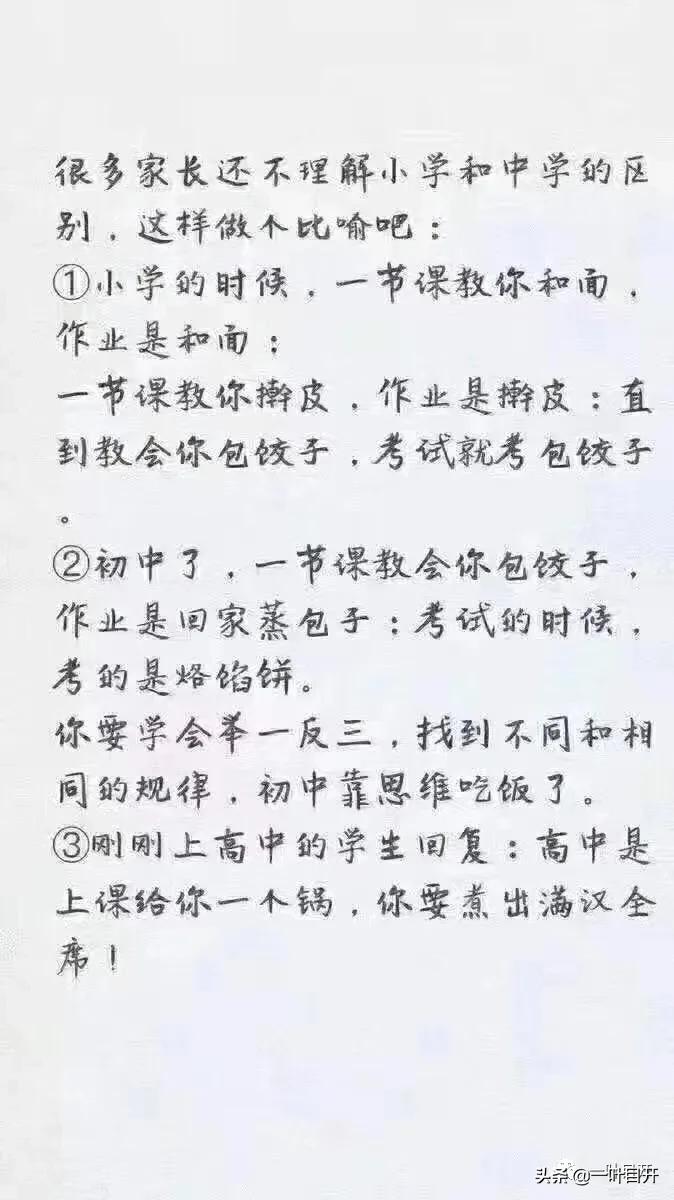 很多家长还不理解小学和中学的区
别，这样做个比喻吧：
①小学的时候，一节课教你和面，
作业是和面；
一节课教你擀皮，作业是擀皮；直
到教会你包饺子，考试就考包饺子
。
②初中了，一节课教会你包饺子，
作业是回家蒸包子；考试的时候，
考的是烙馅饼。
你要学会举一反三，找到不同和相
同的规律，初中靠思维吃饭了。
③刚刚上高中的学生回复：高中是
上课给你一个锅，你要煮出满汉全
席！
头条@一叶自开